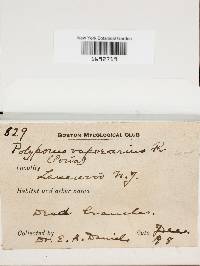 New York Botanical Garden
829
BOSTON MYCOLOGICAL CLUB
Polyporus vaporarius Fr.
(Poria)
Locality
N. J.
Habitat and other notes
Dead branches.
Collected by Date Dec.
Dr. E. A. Daniels